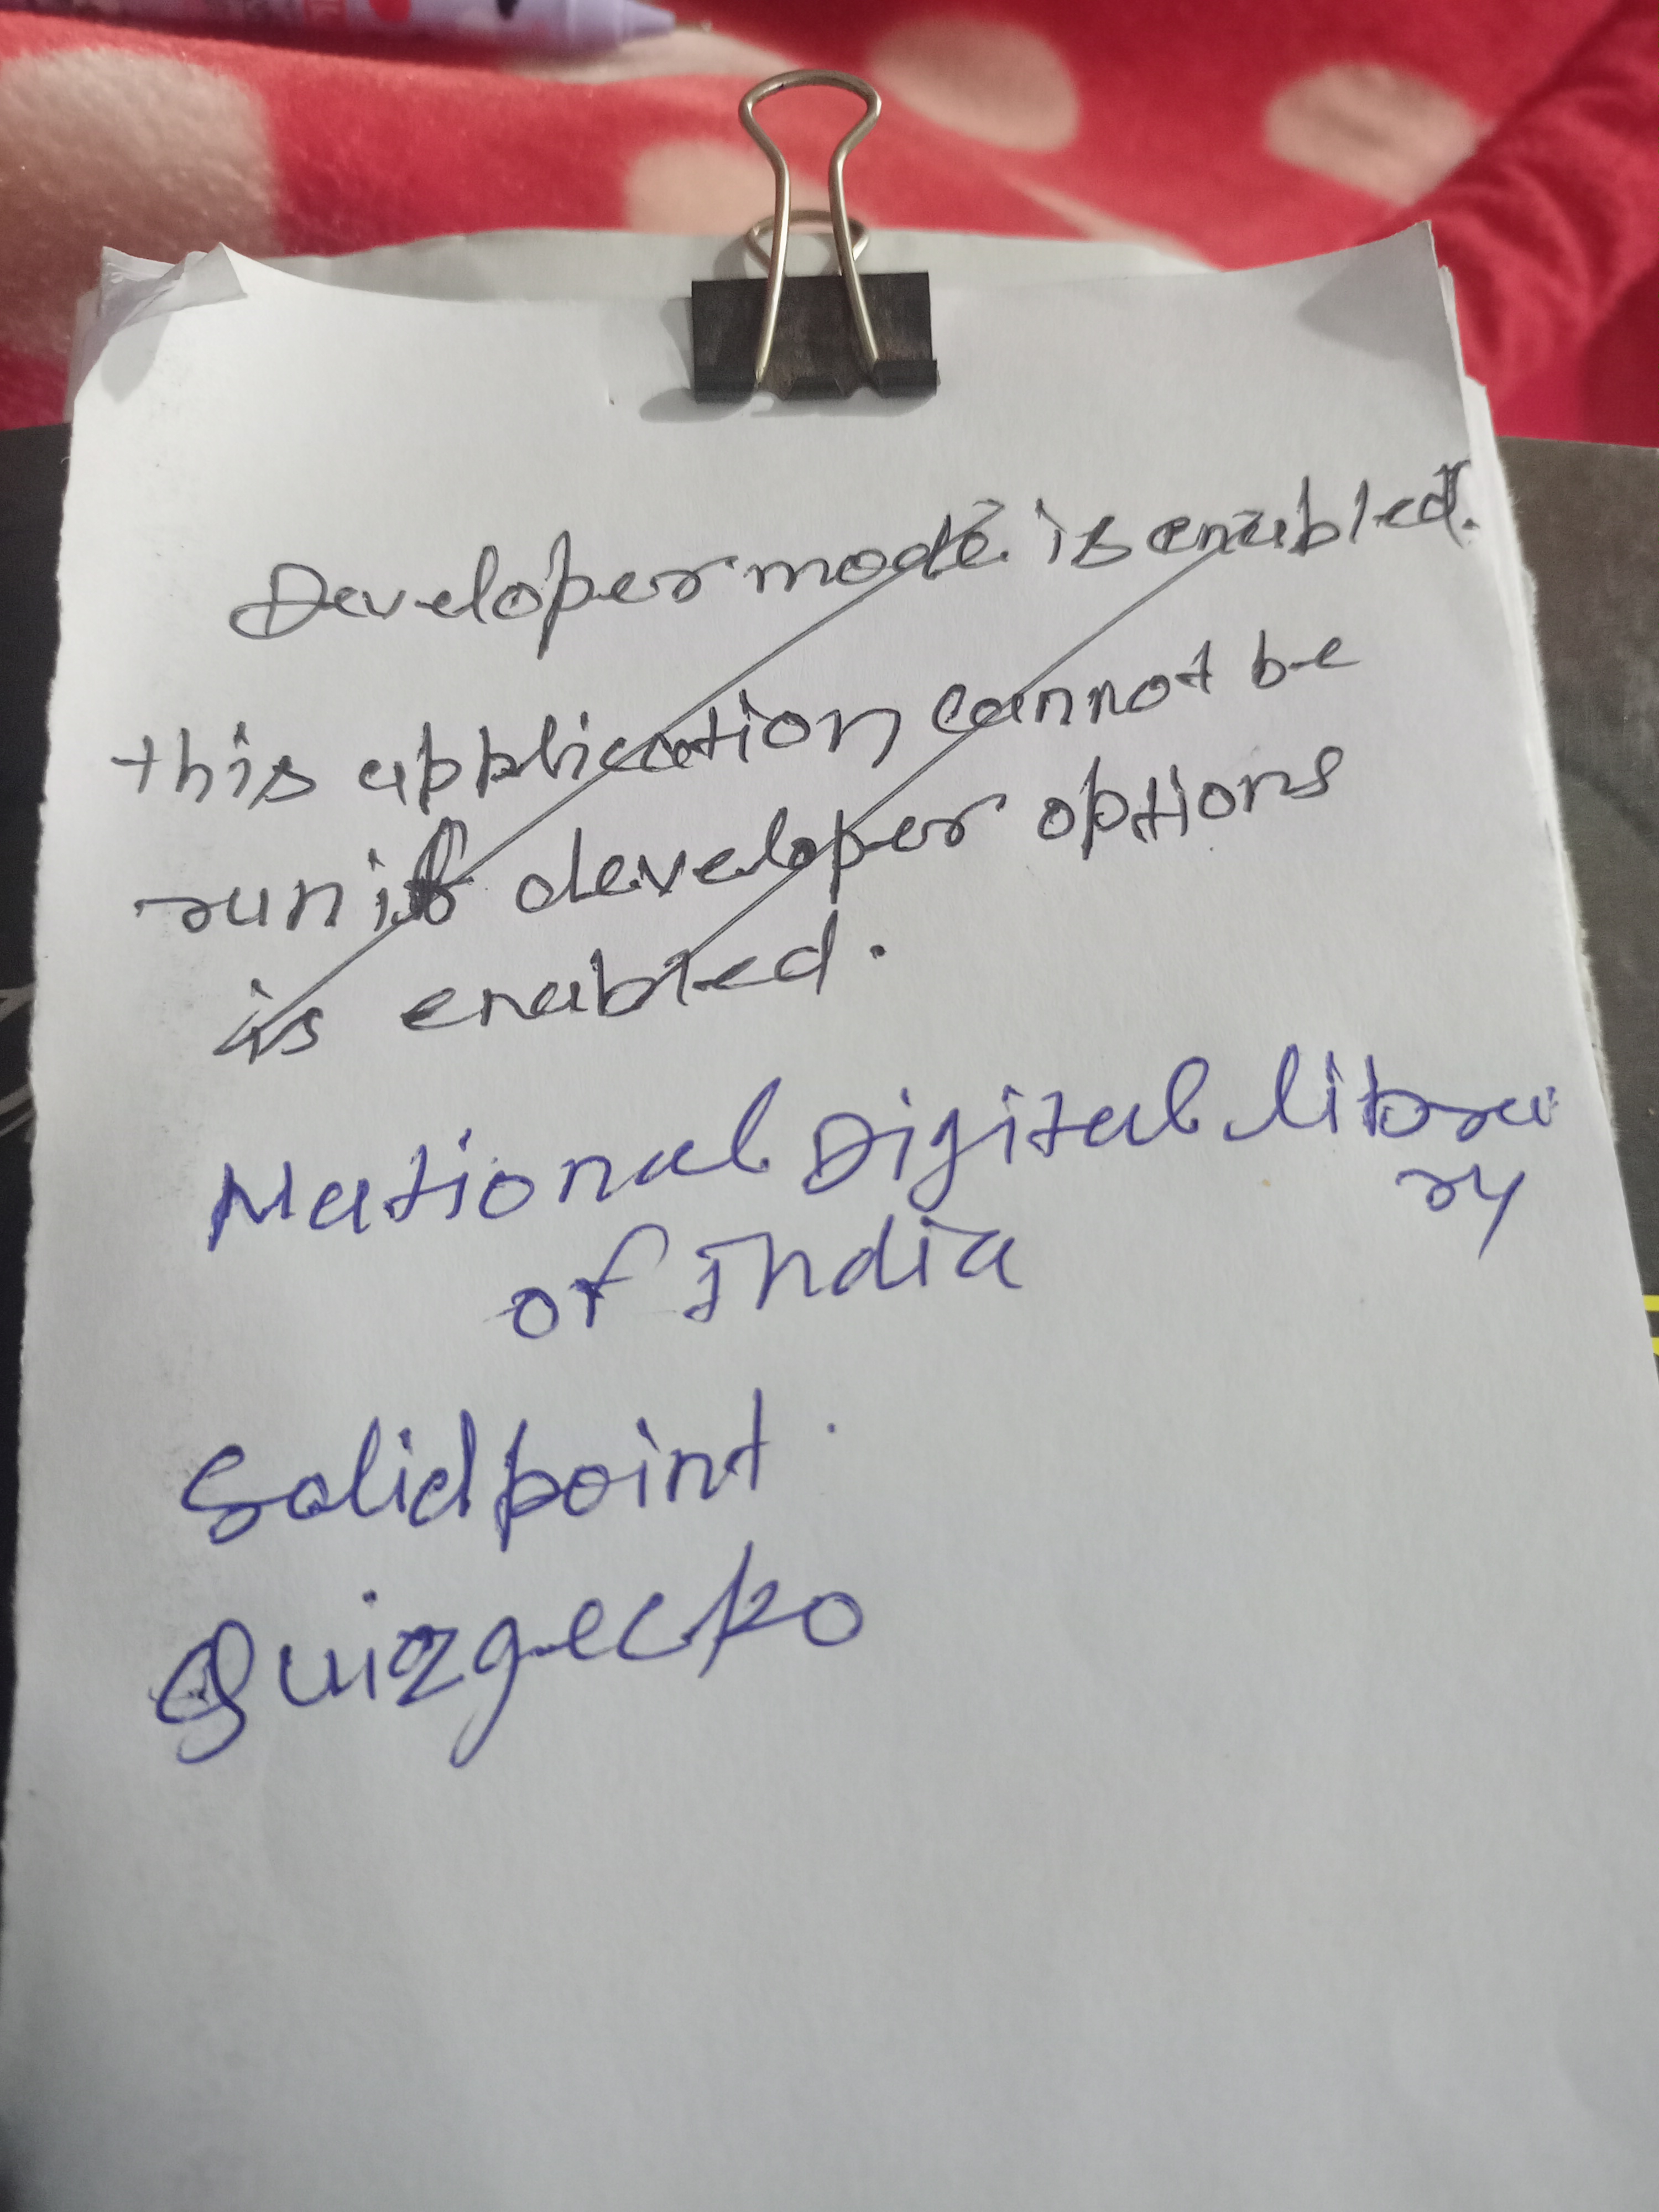 Developer mode is enabled.
this application cannot be
run if developer options
is enabled.
National Digital libra
ry
of india
Solidpoint
Quizgecko